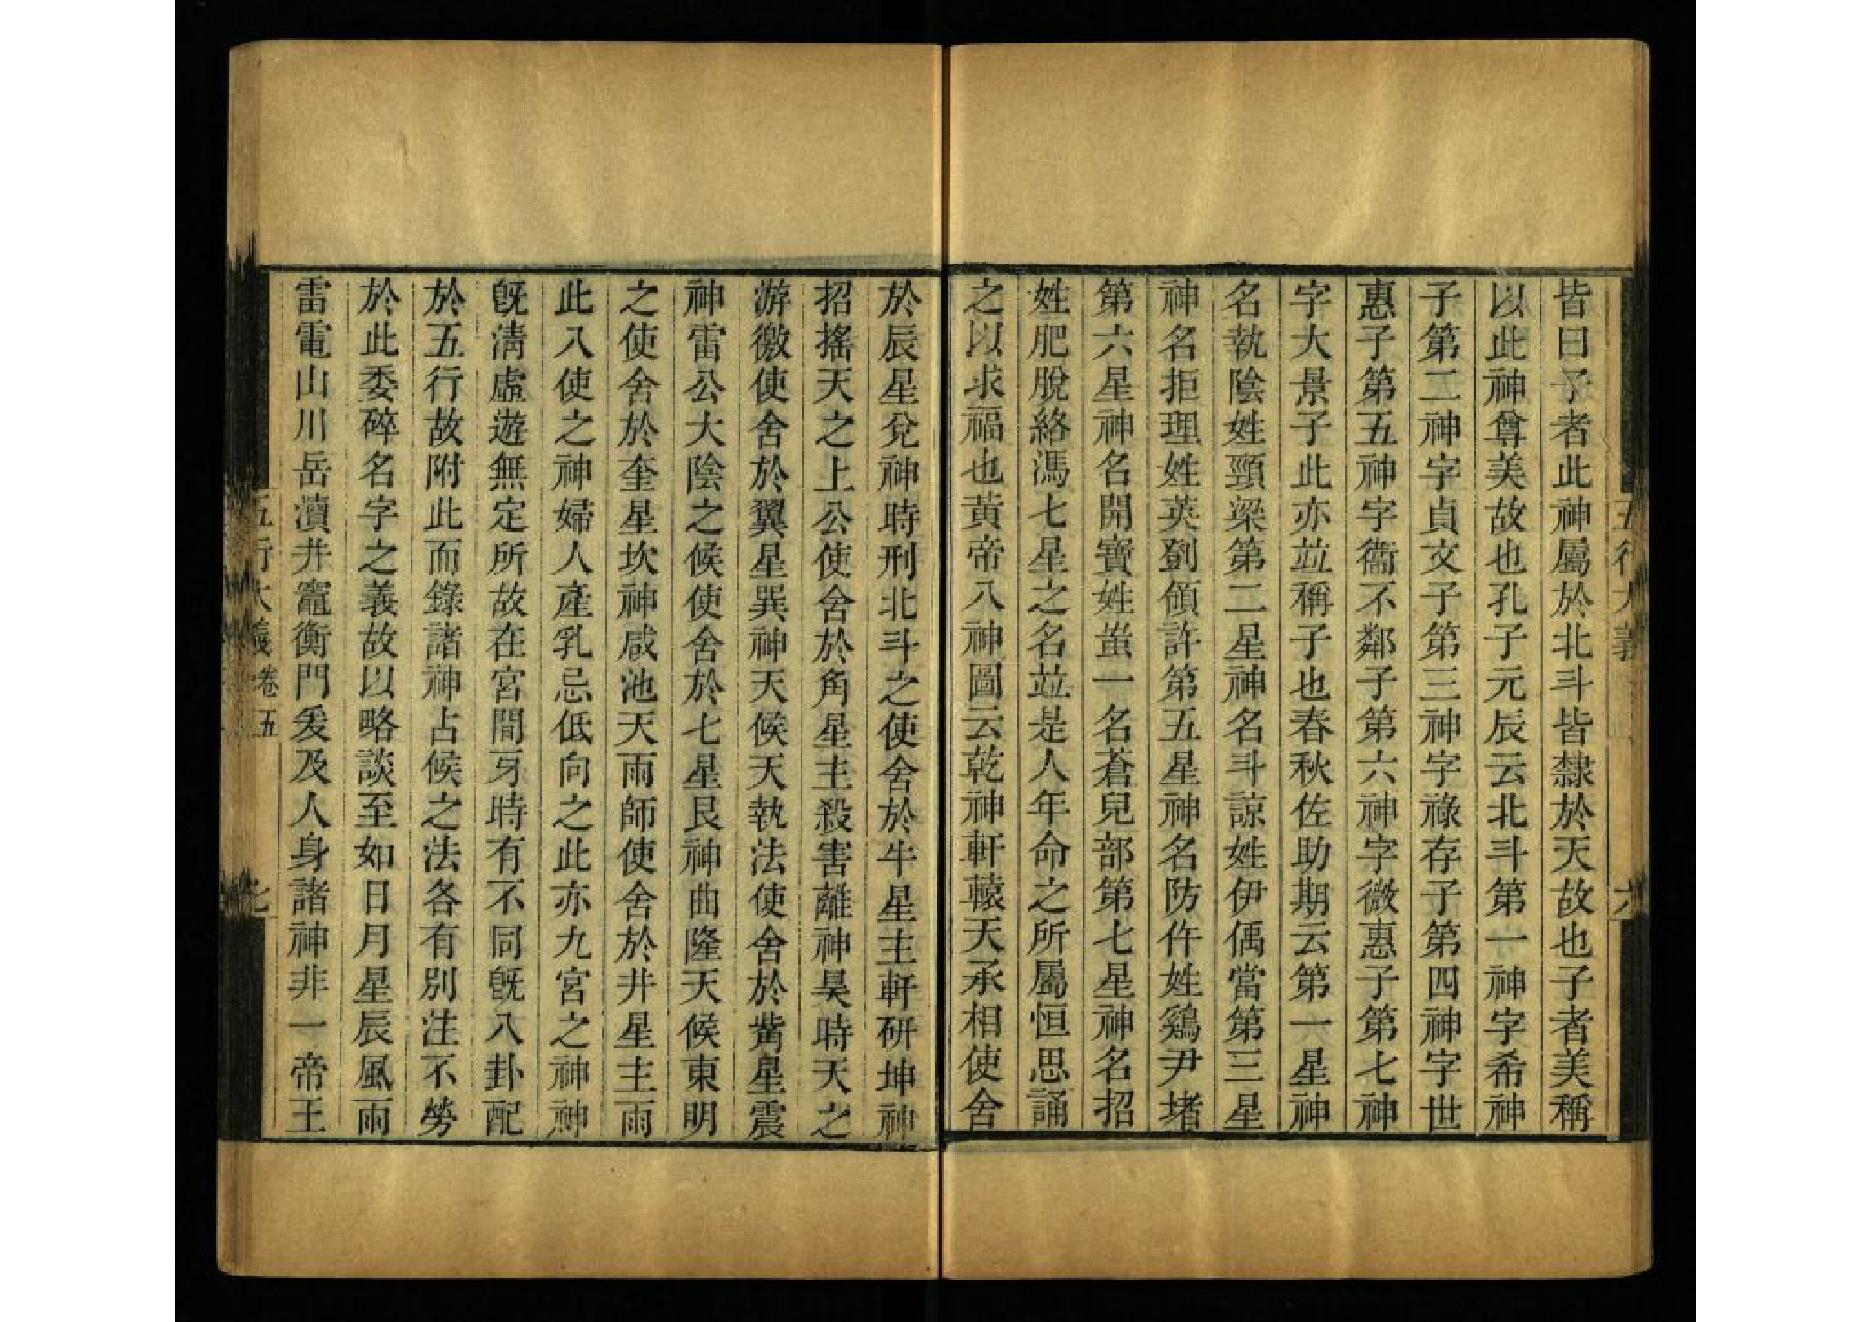 皆曰子者此神屬於北斗皆隸於天故也子者美稱
以此神尊美故也孔子元辰云北斗第一神字希神
子第二神字貞文子第三神字祿存子第四神字世
惠子第五神字衞不鄰子第六神字微惠子第七神
字大景子此亦竝稱子也春秋佐助期云第一星神
名執陰姓頸梁第二星神名斗諒姓伊偊當第三星
神名拒理姓英劉領許第五星神名防仵姓鷄尹堵
第六星神名開寶姓蚩一名蒼兒部第七星神名招
姓肥脫絡馮七星之名竝是人年命之所屬恒思誦
之以求福也黃帝八神圖云乾神軒轅天承相使舍
於辰星兌神時刑北斗之使舍於牛星主軒研坤神
招搖天之上公使舍於角星主殺害離神昊時天之
游徼使舍於翼星巽神天候天執法使舍於觜星震
神雷公大陰之候使舍於七星艮神曲隆天候東明
之使舍於奎星坎神咸池天雨師使舍於井星主雨
此八使之神婦人產乳忌低向之此亦九宮之神神
旣淸虛遊無定所故在宮間牙時有不同旣八卦配
於五行故附此而錄諸神占候之法各有別注不勞
於此委碎名字之義故以略談至如日月星辰風雨
雷電山川岳瀆井竈衡門爰及人身諸神非一帝王
五行大義卷五
七